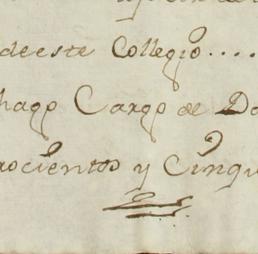 deeste Collegio....
hago Cargo de Do
rocientos y Cinqu